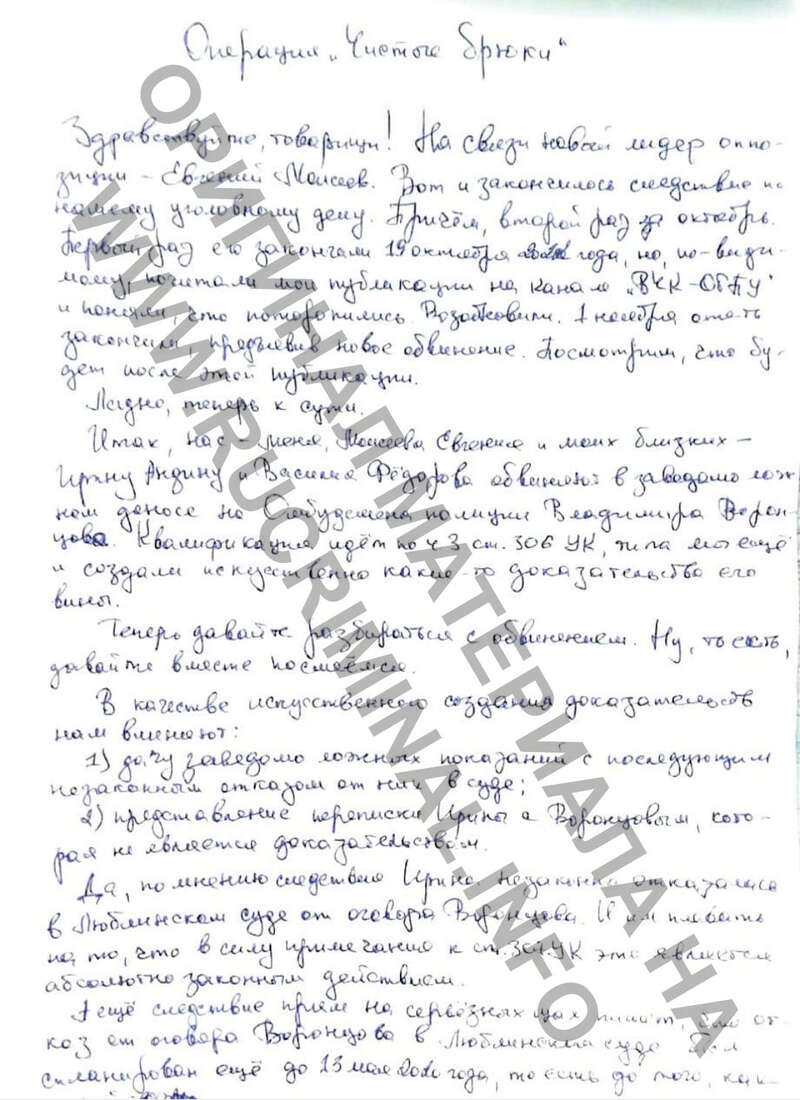 Операция „Чистые брюки"
Здравствуйте, товарищи! На связи новый лидер оппо-
зиции – Евгений Моисеев. Вот и закончилось следствие по
нашему уголовному делу. Причём, второй раз за октябрь.
Первый раз его закончили 19 октября года, но, по-види-
мому, почитали мои публикации на канале „ВЧК-ОГПУ"
и поняли, что поторопились. Возобновили. 1 ноября опять
закончили, предъявив новое обвинение. Посмотрим, что бу-
дет после этой публикации.
Ладно, теперь к сути.
Итак, нас – меня, Моисеева Евгения и моих близких –
Ирину и Василия Фёдорова обвиняют в заведомо лож-
ном доносе на Омбудсмена полиции Владимира Ворон-
цова. Квалификация идёт по ч 3 ст. 306 УК, типа мы ещё
и создали искусственно какие-то доказательства его
вины.
Теперь давайте разбираться с обвинением. Ну, то есть,
давайте вместе посмеёмся.
В качестве искусственного создания доказательств
нам вменяют:
1) дачу заведомо ложных показаний с последующим
незаконным отказом от них в суде;
2) представление переписки Ирины с Воронцовым, кото-
рая не является доказательством.
Да, по мнению следствия Ирина незаконно отказалась
в Люблинском суде от оговора Воронцова. И им плевать
на то, что в силу примечания к ст. 307 УК это является
абсолютно законным действием.
А ещё следствие прям на серьёзных щах пишет, что от-
каз от оговора Воронцова в Люблинском суде был
спланирован ещё до 13 мая года, то есть до того, как
ОРИГИНАЛ МАТЕРИАЛА НА
WWW.RUCRIMINAL.INFO